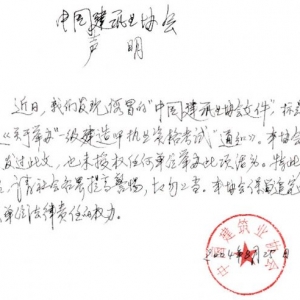 中国建筑业协会
声 明
近日，我们发现假冒的"中国建筑业协会文件"，标
《关于举办"一级建造师执业资格考试"通知》。本协会
发过此文，也未授权任何单位举办此项活动。特此
请社会各界提高警惕，切勿上当。本协会保留追究
单位法律责任的权力。
中国建筑业协会